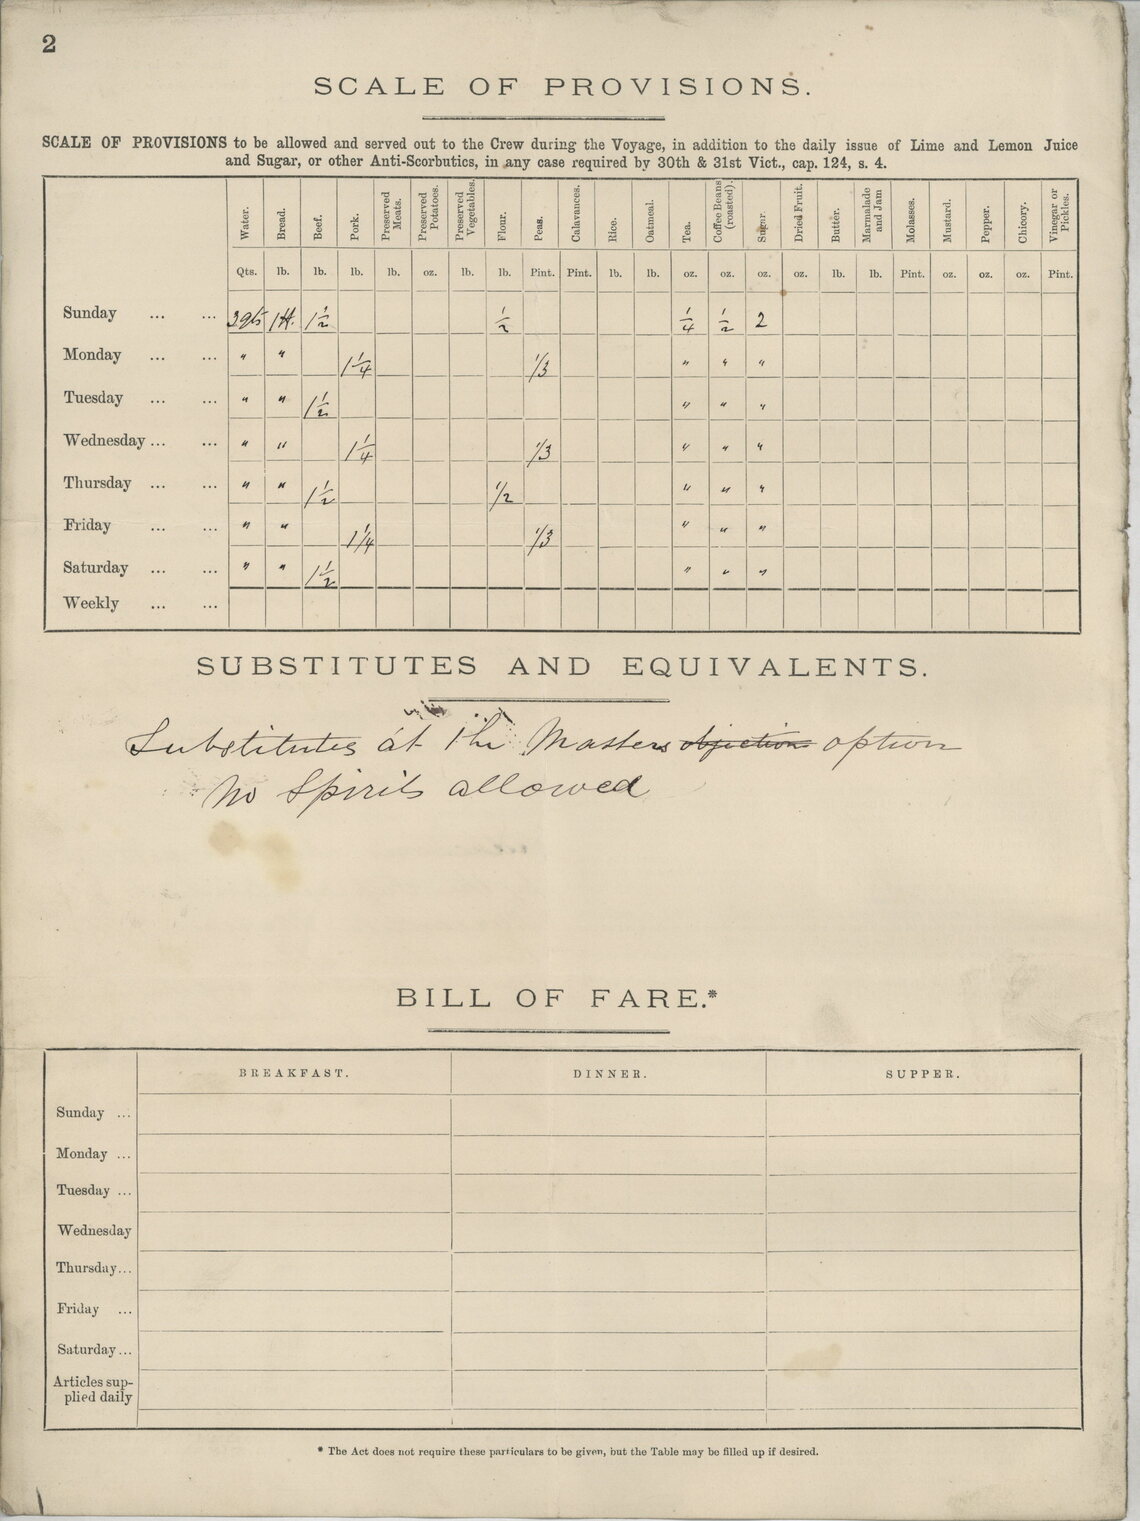 2
SCALE OF PROVISIONS.
SCALE OF PROVISIONS to be allowed and served out to the Crew during the Voyage, in addition to the daily issue of Lime and Lemon Juice
and Sugar, or other Anti-Scorbutics, in any case required by 30th & 31st Vict., cap. 124, s. 4.
Water. Bread. Beef. Pork. Preserved Meats. Preserved Potatoes. Preserved Vegetables. Flour. Peas. Calavances. Rice. Oatmeal. Tea. Coffee Beans (roasted). Sugar. Dried Fruit. Butter. Marmalade and Jam Molasses. Mustard. Pepper. Chicory. Vinegar or Pickles.
Qts. lb. lb. lb. lb. oz. lb. lb. Pint. Pint. lb. lb. oz. oz. oz. oz. lb. lb. Pint. oz. oz. oz. Pint.
Sunday ... ... 3 qts 1 lb. 1 1/2 1/2 1/4 1/2 2
Monday ... ... " " 1 1/4 1/3 " " "
Tuesday ... ... " " 1 1/2 " " "
Wednesday ... ... " " 1 1/4 1/3 " " "
Thursday ... ... " " 1 1/2 1/2 " " "
Friday ... ... " " 1 1/4 1/3 " " "
Saturday ... ... " " 1 1/2 " " "
Weekly ... ...
SUBSTITUTES AND EQUIVALENTS.
Substitutes at the Masters objection option
No Spirits allowed
BILL OF FARE.*
BREAKFAST. DINNER. SUPPER.
Sunday ...
Monday ...
Tuesday ...
Wednesday
Thursday...
Friday ...
Saturday...
Articles sup-
plied daily
* The Act does not require these particulars to be given, but the Table may be filled up if desired.